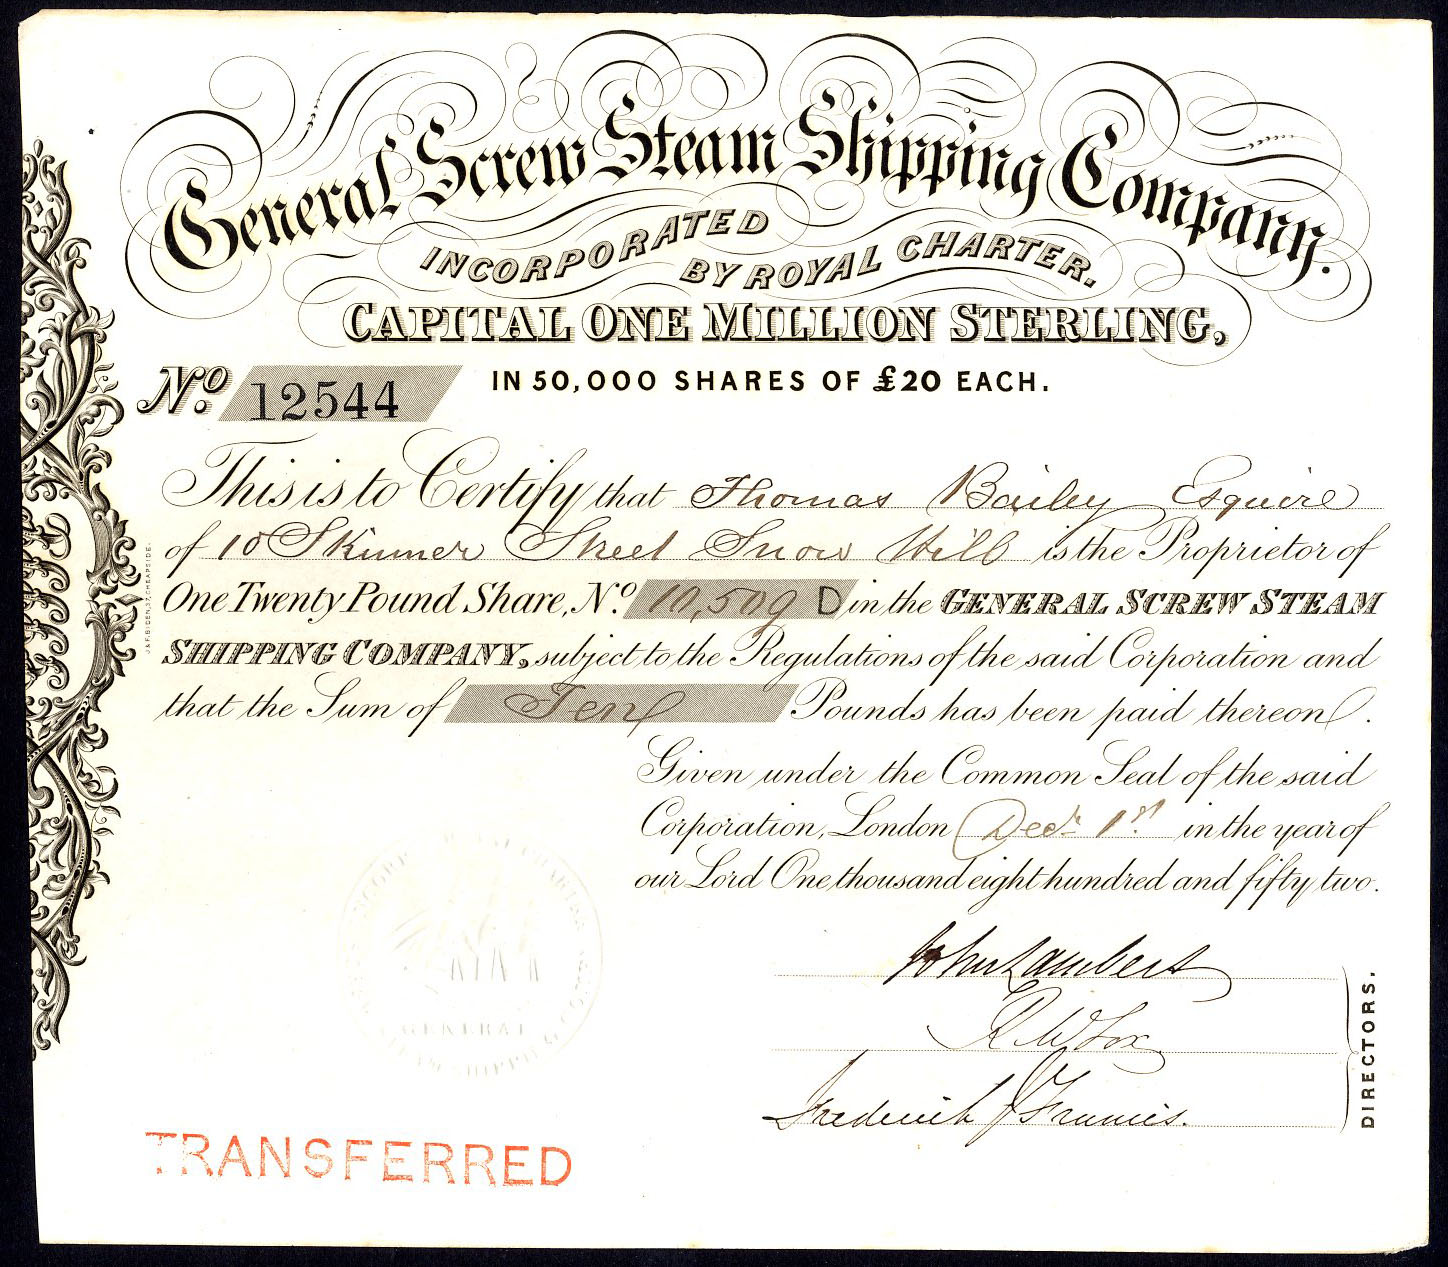 General Screw Steam Shipping Company.
INCORPORATED
BY ROYAL CHARTER.
CAPITAL ONE MILLION STERLING,
IN 50,000 SHARES OF £20 EACH.
No. 12544
This is to Certify that Thomas Bailey Esquire
of 10 Skinner Street Snow Hill is the Proprietor of
One Twenty Pound Share, No. 10,509 D in the GENERAL SCREW STEAM
SHIPPING COMPANY, subject to the Regulations of the said Corporation and
that the Sum of Ten Pounds has been paid thereon.
Given under the Common Seal of the said
Corporation, London Decr 1st in the year of
our Lord One thousand eight hundred and fifty two.
John Lambert
R W Fox
Frederick J Francis.
DIRECTORS.
J & F. BIDEN, 37, CHEAPSIDE.
GENERAL
TRANSFERRED